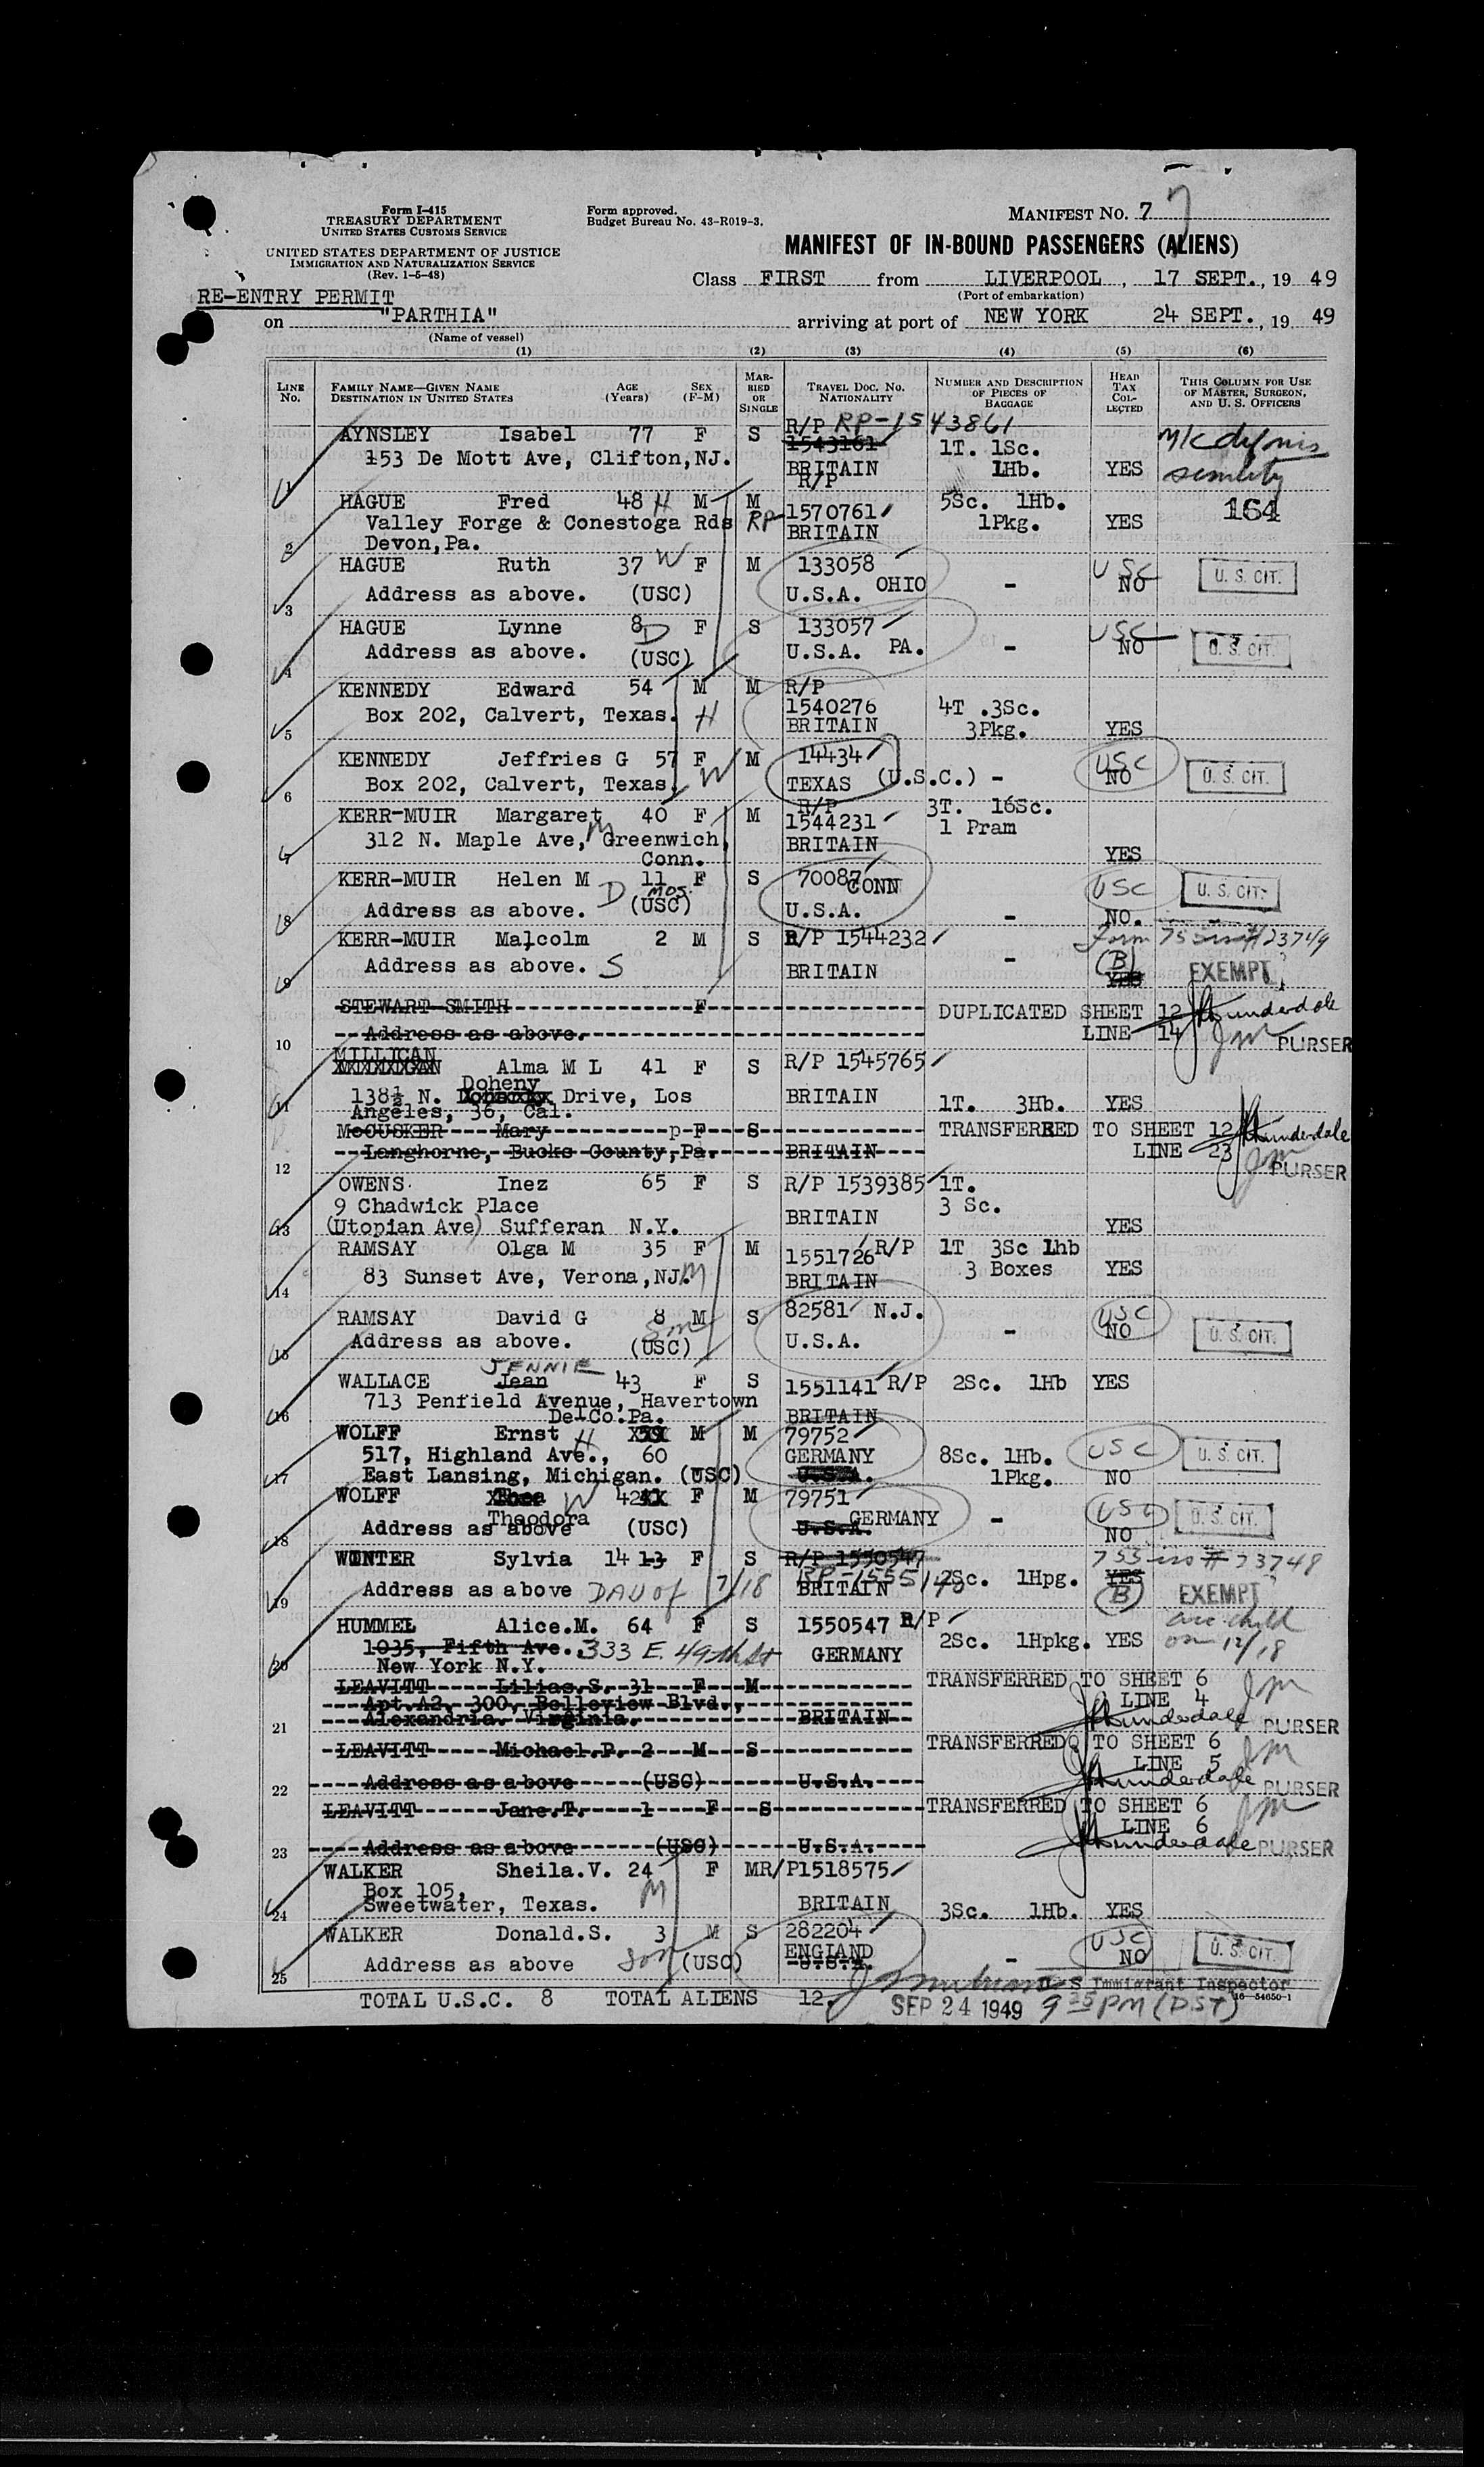 Form I-415
TREASURY DEPARTMENT
UNITED STATES CUSTOMS SERVICE
UNITED STATES DEPARTMENT OF JUSTICE
IMMIGRATION AND NATURALIZATION SERVICE
(Rev. 1-5-48)
Form approved.
Budget Bureau No. 43-R019-3.
MANIFEST NO. 7 7
MANIFEST OF IN-BOUND PASSENGERS (ALIENS)
Class FIRST from LIVERPOOL, 17 SEPT., 19 49
(Port of embarkation)
RE-ENTRY PERMIT
on "PARTHIA" arriving at port of NEW YORK 24 SEPT., 19 49
(Name of vessel)
(1) (2) (3) (4) (5) (6)
LINE No. FAMILY NAME—GIVEN NAME DESTINATION IN UNITED STATES AGE (Years) SEX (F-M) MARRIED OR SINGLE TRAVEL DOC. NO. NATIONALITY NUMBER AND DESCRIPTION OF PIECES OF BAGGAGE HEAD TAX COLLECTED THIS COLUMN FOR USE OF MASTER, SURGEON, AND U. S. OFFICERS
R/P RP-1543861
AYNSLEY Isabel 77 F S 1543161 1T. 1Sc.
153 De Mott Ave, Clifton,NJ. BRITAIN 1Hb. YES
senility
1
R/P
HAGUE Fred 48 H M M 5Sc. 1Hb. 164
Valley Forge & Conestoga Rds RP 1570761 1Pkg. YES
Devon,Pa. BRITAIN
2
HAGUE Ruth 37 W F M 133058 USC
Address as above. (USC) U.S.A. OHIO - NO U. S. CIT.
3
HAGUE Lynne 8 D F S 133057 USC
Address as above. (USC) U.S.A. PA. - NO U. S. CIT.
4
KENNEDY Edward 54 M M R/P
Box 202, Calvert, Texas. H 1540276 4T .3Sc.
BRITAIN 3Pkg. YES
5
KENNEDY Jeffries G 57 F M 14434 USC
Box 202, Calvert, Texas. W TEXAS (U.S.C.) - NO U. S. CIT.
6
KERR-MUIR Margaret 40 F M R/P 3T. 16Sc.
312 N. Maple Ave, M Greenwich, 1544231 1 Pram
Conn. BRITAIN YES
7
KERR-MUIR Helen M 11 F S 70087 CONN USC U. S. CIT.
D mos.
Address as above. (USC) U.S.A. - NO.
8
KERR-MUIR Malcolm 2 M S R/P 1544232 Form 755 iss # 23749
Address as above. S BRITAIN - (B) YES EXEMPT
9
STEWART SMITH F DUPLICATED SHEET 12
Address as above. LINE 14
PURSER
10
MILLICAN
Alma M L 41 F S R/P 1545765
Doheny
138½ N. Drive, Los BRITAIN 1T. 3Hb. YES
Angeles, 36, Cal.
11
McCUSKER Mary p F S TRANSFERRED TO SHEET 12
Langhorne, Bucks County,Pa. BRITAIN LINE 23
PURSER
12
OWENS. Inez 65 F S R/P 1539385 1T.
9 Chadwick Place 3 Sc.
(Utopian Ave) Sufferan N.Y. BRITAIN YES
13
RAMSAY Olga M 35 F M 1551726 R/P 1T 3Sc 1hb
83 Sunset Ave, Verona,NJ. M BRITAIN 3 Boxes YES
14
RAMSAY David G 8 M S 82581 N.J. USC
Son
Address as above. (USC) U.S.A. - NO U. S. CIT.
15
JENNIE
WALLACE Jean 43 F S 1551141 R/P 2Sc. 1Hb YES
713 Penfield Avenue, Havertown
Del Co.Pa. BRITAIN
16
WOLFF Ernst H 59 M M 79752 USC U. S. CIT.
517, Highland Ave., 60 GERMANY 8Sc. 1Hb.
East Lansing, Michigan. (USC) U.S.A. 1Pkg. NO
17
WOLFF Thea W 42 F M 79751 USC
Theodora GERMANY U. S. CIT.
Address as above (USC) U.S.A. - NO
18
WINTER Sylvia 14 13 F S R/P 1550547 755 iss # 23748
RP-155514
Address as above DAU of 17/18 BRITAIN 2Sc. 1Hpg. YES (B) EXEMPT
19
HUMMEL Alice.M. 64 F S 1550547 R/P acc child
1035, Fifth Ave. 333 E. 49th St 2Sc. 1Hpkg. YES on 17/18
New York N.Y. GERMANY
20
LEAVITT Lilias.S. 31 F M TRANSFERRED TO SHEET 6
Apt.A2, 300, Belleview Blvd., LINE 4
Alexandria. Virginia. BRITAIN PURSER
21
LEAVITT Michael.P. 2 M S TRANSFERRED TO SHEET 6
LINE 5
Address as above (USC) U.S.A. PURSER
22
LEAVITT Jane.T. 1 F S TRANSFERRED TO SHEET 6
LINE 6
Address as above (USC) U.S.A. PURSER
23
WALKER Sheila.V. 24 F M R/P1518575
Box 105, M
Sweetwater, Texas. BRITAIN 3Sc. 1Hb. YES
24
WALKER Donald.S. 3 M S 282204 USC
ENGLAND
Address as above Son (USC) U.S.A. - NO U. S. CIT.
25
U S Immigrant Inspector
TOTAL U.S.C. 8 TOTAL ALIENS 12.
SEP 24 1949 9 35 PM (DST) 16—54650-1